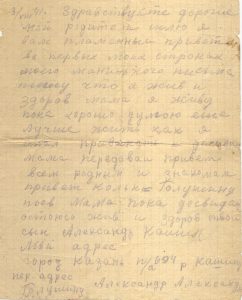 3/VIII 41. Здравствуйте дорогие
мои родители шлю я
вам пламенный привет
в первых моих строках
моего маленького письма
что я жив и
здоров мама я живу
пока хорошо думаю еще
лучше жить как я
мама передавай привет
всем родным и знакомым
привет Кольке
Мама пока досвидан
остаюсь жив и здоров твой
сын Александр Кашин
Мой адрес
город Казань п/я 694 Кашину
пер адрес
Александр Алексан